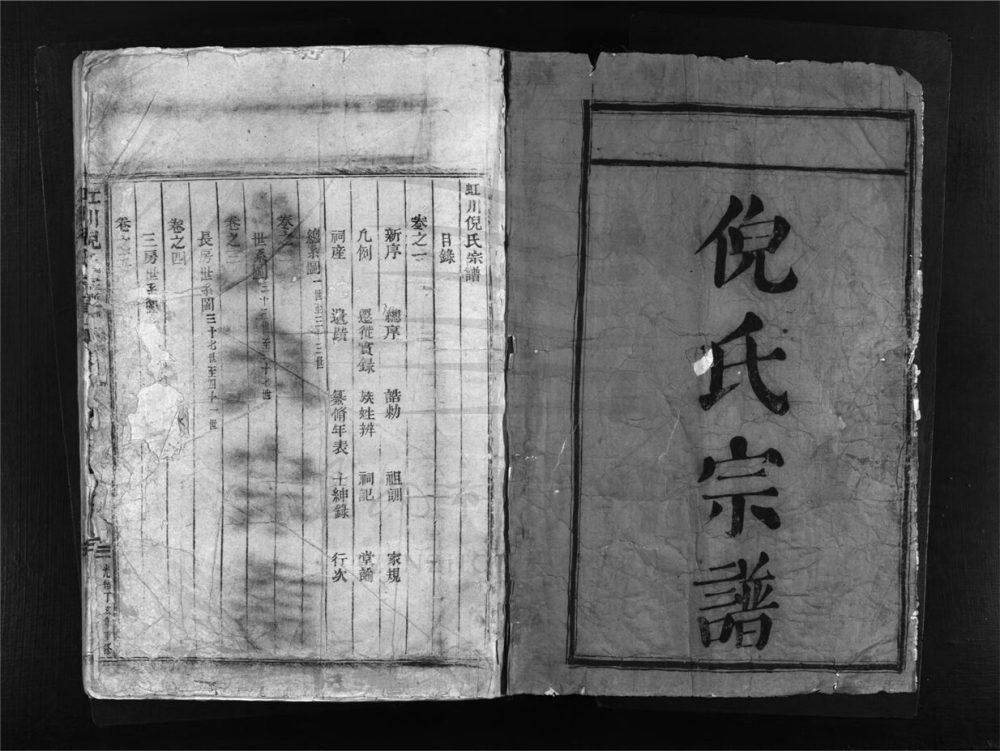 倪氏宗譜
虹川倪氏宗譜
目錄
卷之一
新序 總序 誥勅 祖訓 家規
凡例 遷徙實錄 族姓辨 祠記 堂
祠產 遺蹟 纂脩年表 士紳錄 行次
總系圖一世至三十三世
卷之二
世系圖三十三世至三十七世
卷之三
長房世系圖三十七世至四十一世
卷之四
三房世系圖
卷之五
虹川倪氏宗譜
光緒丁亥